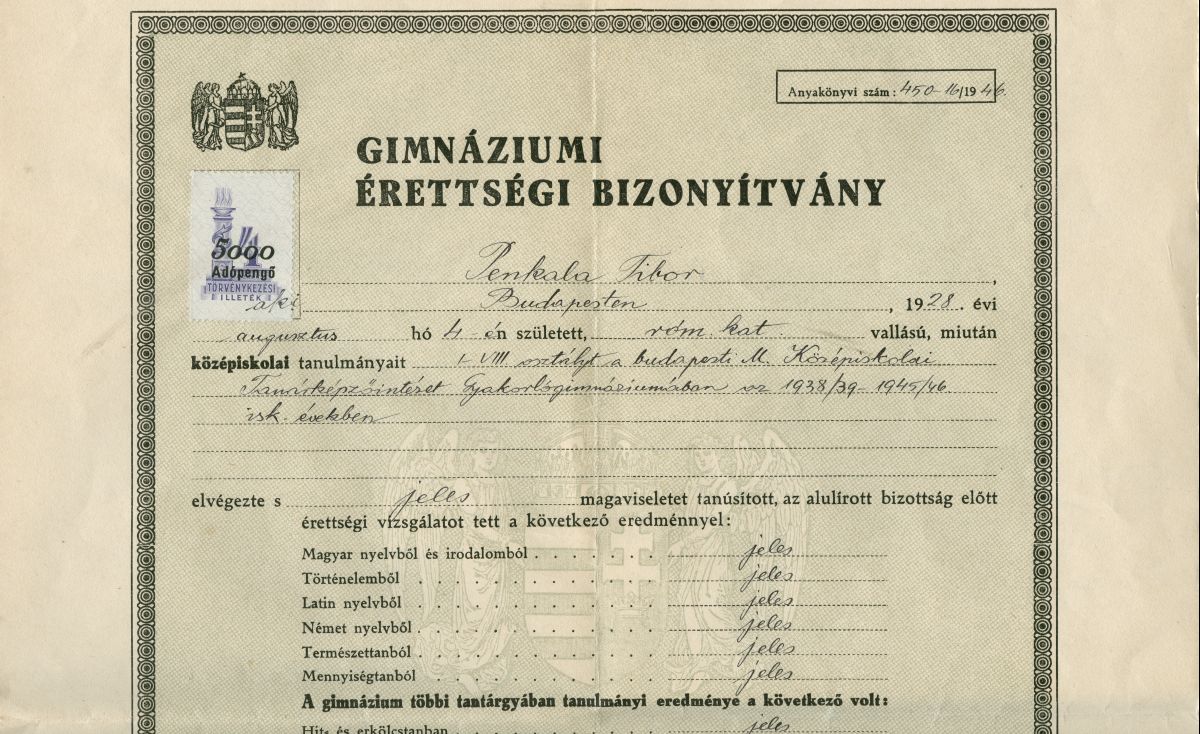 Anyakönyvi szám: 450-16/1946.
GIMNÁZIUMI
ÉRETTSÉGI BIZONYÍTVÁNY
5000
4
Adópengő
TÖRVÉNYKEZÉSI
ILLETÉK
Penkala Tibor,
aki Budapesten, 1928. évi
augusztus hó 4-én született, róm. kat. vallású, miután
középiskolai tanulmányait I-VIII osztályt a budapesti M. Középiskolai
Tanárképzőintézet Gyakorlógimnáziumában az 1938/39-1945/46.
isk. években
elvégezte s jeles magaviseletet tanúsított, az alulírott bizottság előtt
érettségi vizsgálatot tett a következő eredménnyel:
Magyar nyelvből és irodalomból . . . . . . . jeles
Történelemből . . . . . . . . . . jeles
Latin nyelvből . . . . . . . . . . jeles
Német nyelvből . . . . . . . . . . jeles
Természettanból . . . . . . . . . . jeles
Mennyiségtanból . . . . . . . . . . jeles
A gimnázium többi tantárgyában tanulmányi eredménye a következő volt:
Hit- és erkölcstanban . . . . . . . . jeles